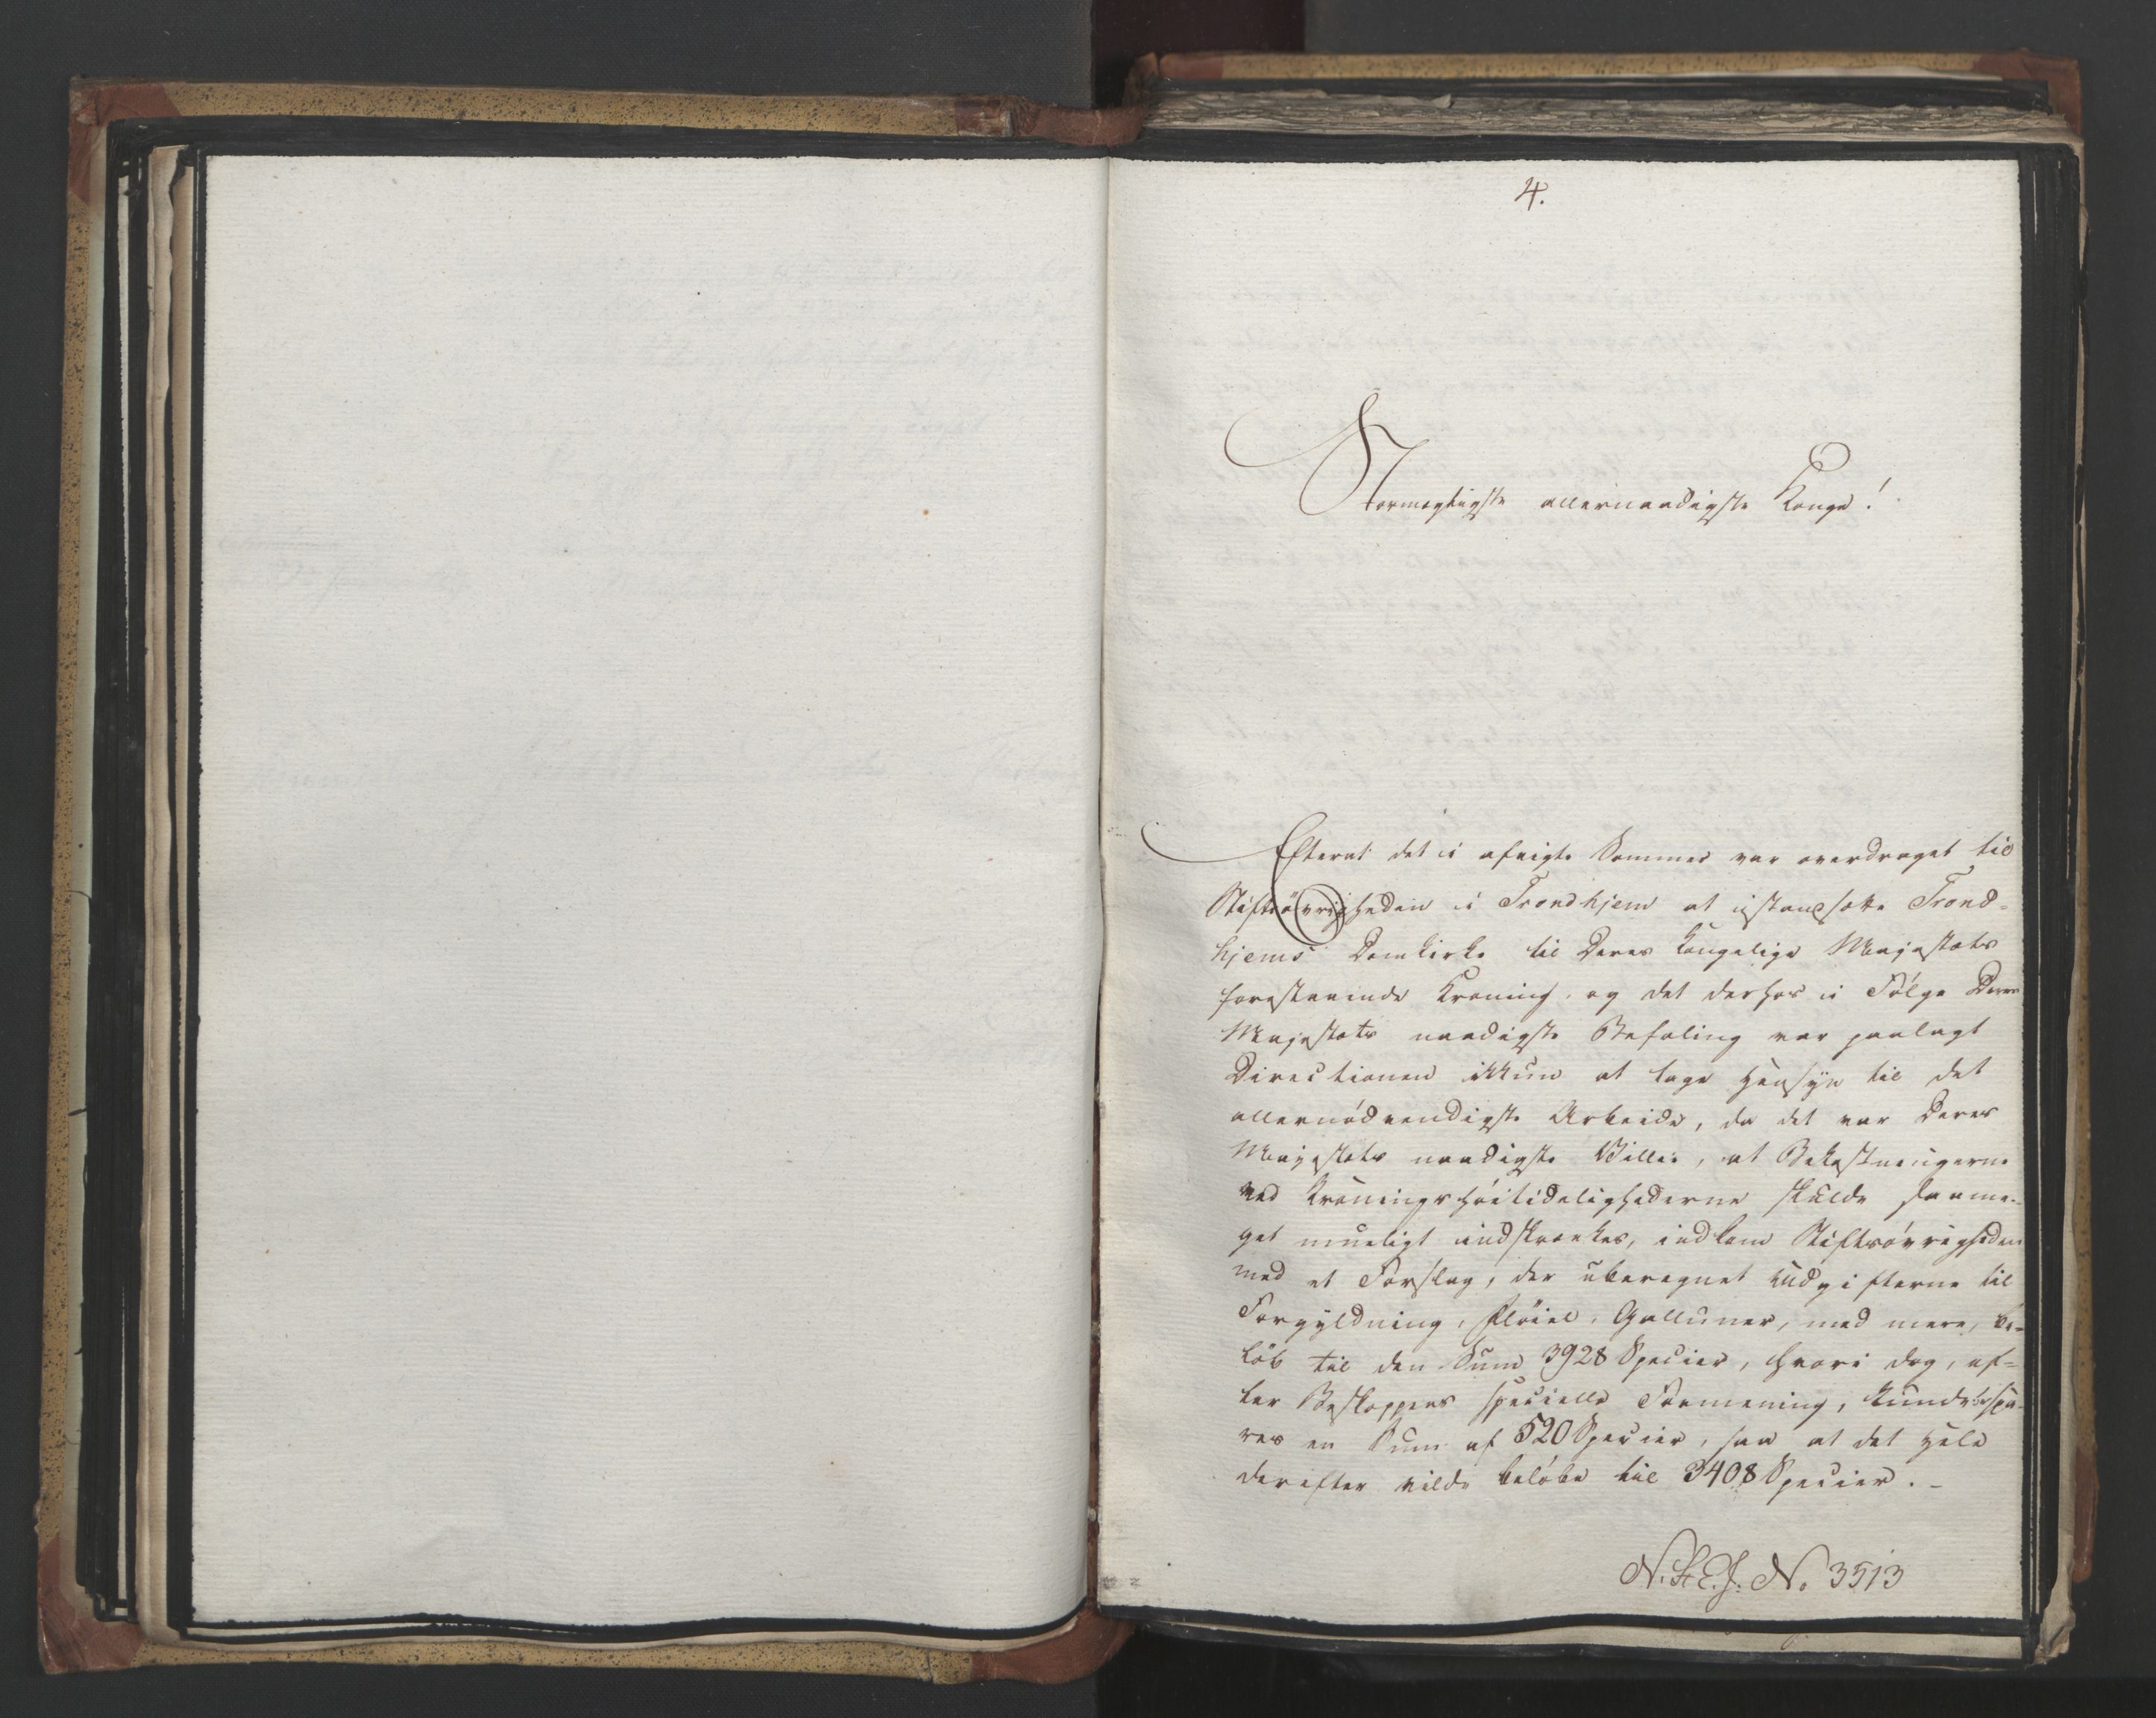 4.
Stormægtigste allernaadigste Konge!
Efterat det i afvigte Sommer var overdraget til
Stiftsövrigheden i Trondhjem at istandsætte Trond-
hjems Domkirke til Deres Kongelige Majestæts
forestaaende Kroning, og det derhos i Fölge Deres
Majestæts naadigste Befaling var paalagt
Directionen ikkun at tage Hensyn til det
allernödvendigste Arbeide, da det var Deres
Majestæts naadigste Villie, at Bekostningerne
ved Kroningshöitidelighederne skulde saame-
get mueligt indskrænkes, indkom Stiftsövrigheden
med et Forslag, der uberegnet Udgifterne til
Forgyldning, Flöiel, Galluner, med mere, be-
löb til den Sum 3928 Species, hvori dog, ef-
ter Biskoppens specielle Formening, kunde spa-
res en Sum af 520 Species, saa at det Hele
derefter vilde belöbe til 3408 Species. -
No 3513